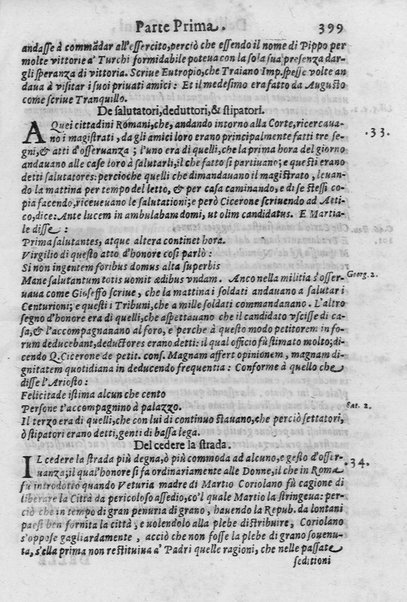 Parte Prima. 399
andasse à commãdar all'essercito, perciò che essendo il nome di Pippo per
molte vittorie a' Turchi formidabile poteua con la sola sua presenza dar-
gli speranza di vittoria. Scriue Eutropio, che Traiano Imp. spesse volte an
daua à visitar i suoi priuati amici: Et il medesimo era fatto da Augusto
come scriue Tranquillo.
De salutatori, deduttori, & stipatori.
A Quei cittadini Romani, che, andando intorno alla Corte, ricercaua-
no i magistrati, da gli amici loro erano principalmente fatti tre se-
gni, & atti d'osseruanza; l'uno era di quelli, che la prima hora del giorno
andauano alle case loro à salutarli, il che fatto si partiuano; e questi erano
detti salutatores: percioche quelli che dimandauano il magistrato, leuan-
do la mattina per tempo del letto, & per casa caminando, e di se stessi co
pia facendo, riceueuano le salutationi; e però Cicerone scriuendo ad Atti-
co, dice: Ante lucem in ambulabam domi, ut olim candidatus. E Martia-
le disse:
Prima salutantes, atque altera continet hora.
Virgilio di questo atto d'honore così parlò:
Si non ingentem foribus domus alta superbis
Mane salutantum totis uomit adibus vndam. Anco nella militia s'osser-
uaua come Gioseffo scriue, che la mattina i soldati andauano à salutar i
Centurioni; e questi i Tribuni, che a mille soldati commandauano. L'altro
segno d'honore era di quelli, che aspettauano che il candidato vscisse di ca-
sa, & l'accompagnauano al foro, e perche à questo modo petitorem in fo-
rum deducebant, deduttores erano detti: il qual officio fù stimato molto; di-
cendo Q. Cicerone de petit. cons. Magnam affert opinionem, magnam di-
gnitatem quotidiana in deducendo frequentia: Conforme à quello che
disse l'Ariosto:
Felicitade istima alcun che cento
Persone t'accompagnino à palazzo.
Il terzo era di quelli, che con lui di continuo stauano, che perciò settatori,
ò stipatori erano detti, genti di bassa lega.
Del cedere la strada.
IL cedere la strada più degna, ò più commoda ad alcuno, e gesto d'osser-
uanza; il qual'honore si fa ordinariamente alle Donne, il che in Roma
fù introdotto quando Veturia madre di Martio Coriolano fù cagione di
liberare la Città da pericoloso assedio, co'l quale Martio la stringeua: per-
ciò che in tempo di gran penuria di grano, hauendo la Repub. da lontani
paesi ben fornita la città, e uolendolo alla plebe distribuire, Coriolano
s'oppose gagliardamente, acciò che non fosse la plebe di grano souenu-
ta, s'ella prima non restituiua a' Padri quelle ragioni, che nelle passate
seditioni
33.
Georg. 2.
Sat. 2.
34.